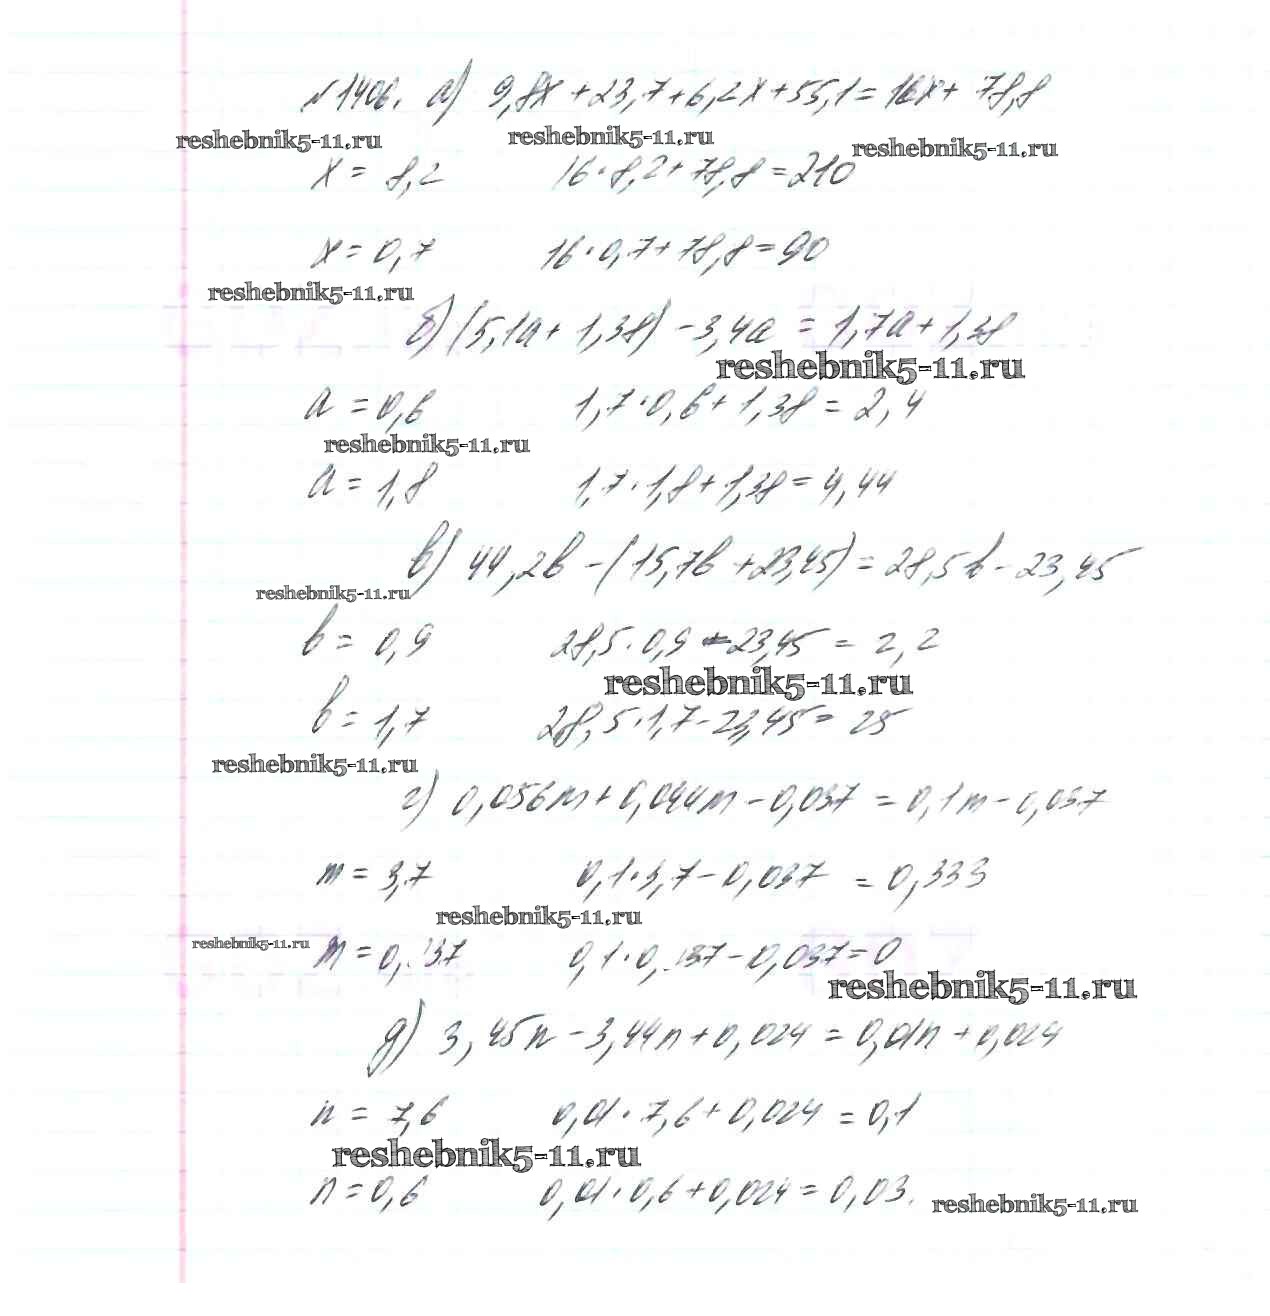 №1406. а) 9,8x + 23,7 + 6,2x + 55,1 = 16x + 78,8
reshebnik5-11.ru reshebnik5-11.ru reshebnik5-11.ru
x = 8,2 16 · 8,2 + 78,8 = 210
x = 0,7 16 · 0,7 + 78,8 = 90
reshebnik5-11.ru
б) (5,1a + 1,38) - 3,4a = 1,7a + 1,38
reshebnik5-11.ru
a = 0,6 1,7 · 0,6 + 1,38 = 2,4
reshebnik5-11.ru
a = 1,8 1,7 · 1,8 + 1,38 = 4,44
в) 44,2b - (15,7b + 23,45) = 28,5b - 23,45
reshebnik5-11.ru
b = 0,9 28,5 · 0,9 - 23,45 = 2,2
reshebnik5-11.ru
b = 1,7 28,5 · 1,7 - 23,45 = 25
reshebnik5-11.ru
г) 0,056m + 0,044m - 0,037 = 0,1m - 0,037
m = 3,7 0,1 · 3,7 - 0,037 = 0,333
reshebnik5-11.ru
reshebnik5-11.ru
m = 0, 37 0,1 · 0, 37 - 0,037 = 0
reshebnik5-11.ru
д) 3,45n - 3,44n + 0,024 = 0,01n + 0,024
n = 7,6 0,01 · 7,6 + 0,024 = 0,1
reshebnik5-11.ru
n = 0,6 0,01 · 0,6 + 0,024 = 0,03.
reshebnik5-11.ru